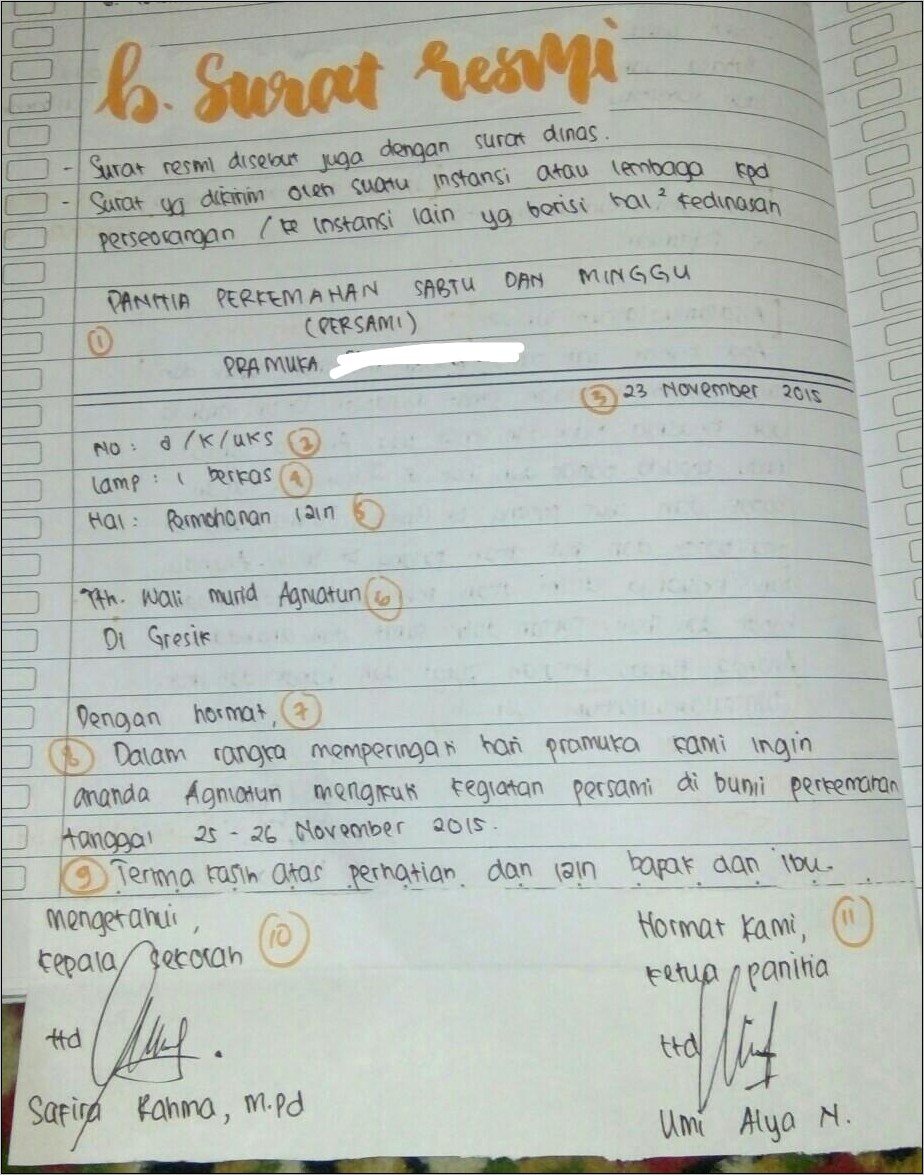 b. Surat resmi
- Surat resmi disebut juga dengan surat dinas.
- Surat yg dikirim oleh suatu instansi atau lembaga kpd
perseorangan / ke instansi lain yg berisi hal² kedinasan
PANITIA PERKEMAHAN SABTU DAN MINGGU
(PERSAMI)
①
PRAMUKA
③ 23 November 2015
No : 8 /K/UKS ②
Lamp : 1 berkas ④
Hal : Permohonan izin ⑤
Yth. Wali murid Agniatun ⑥
Di Gresik
Dengan hormat, ⑦
⑧ Dalam rangka memperingati hari pramuka kami ingin
ananda Agniatun mengikuti kegiatan persami di bumi perkemahan
tanggal 25 - 26 November 2015.
⑨ Terima kasih atas perhatian dan izin bapak dan ibu.
Mengetahui, ⑩
Kepala Sekolah
ttd
Safira Rahma, M.Pd
Hormat Kami, ⑪
Ketua panitia
ttd
Umi Alya N.